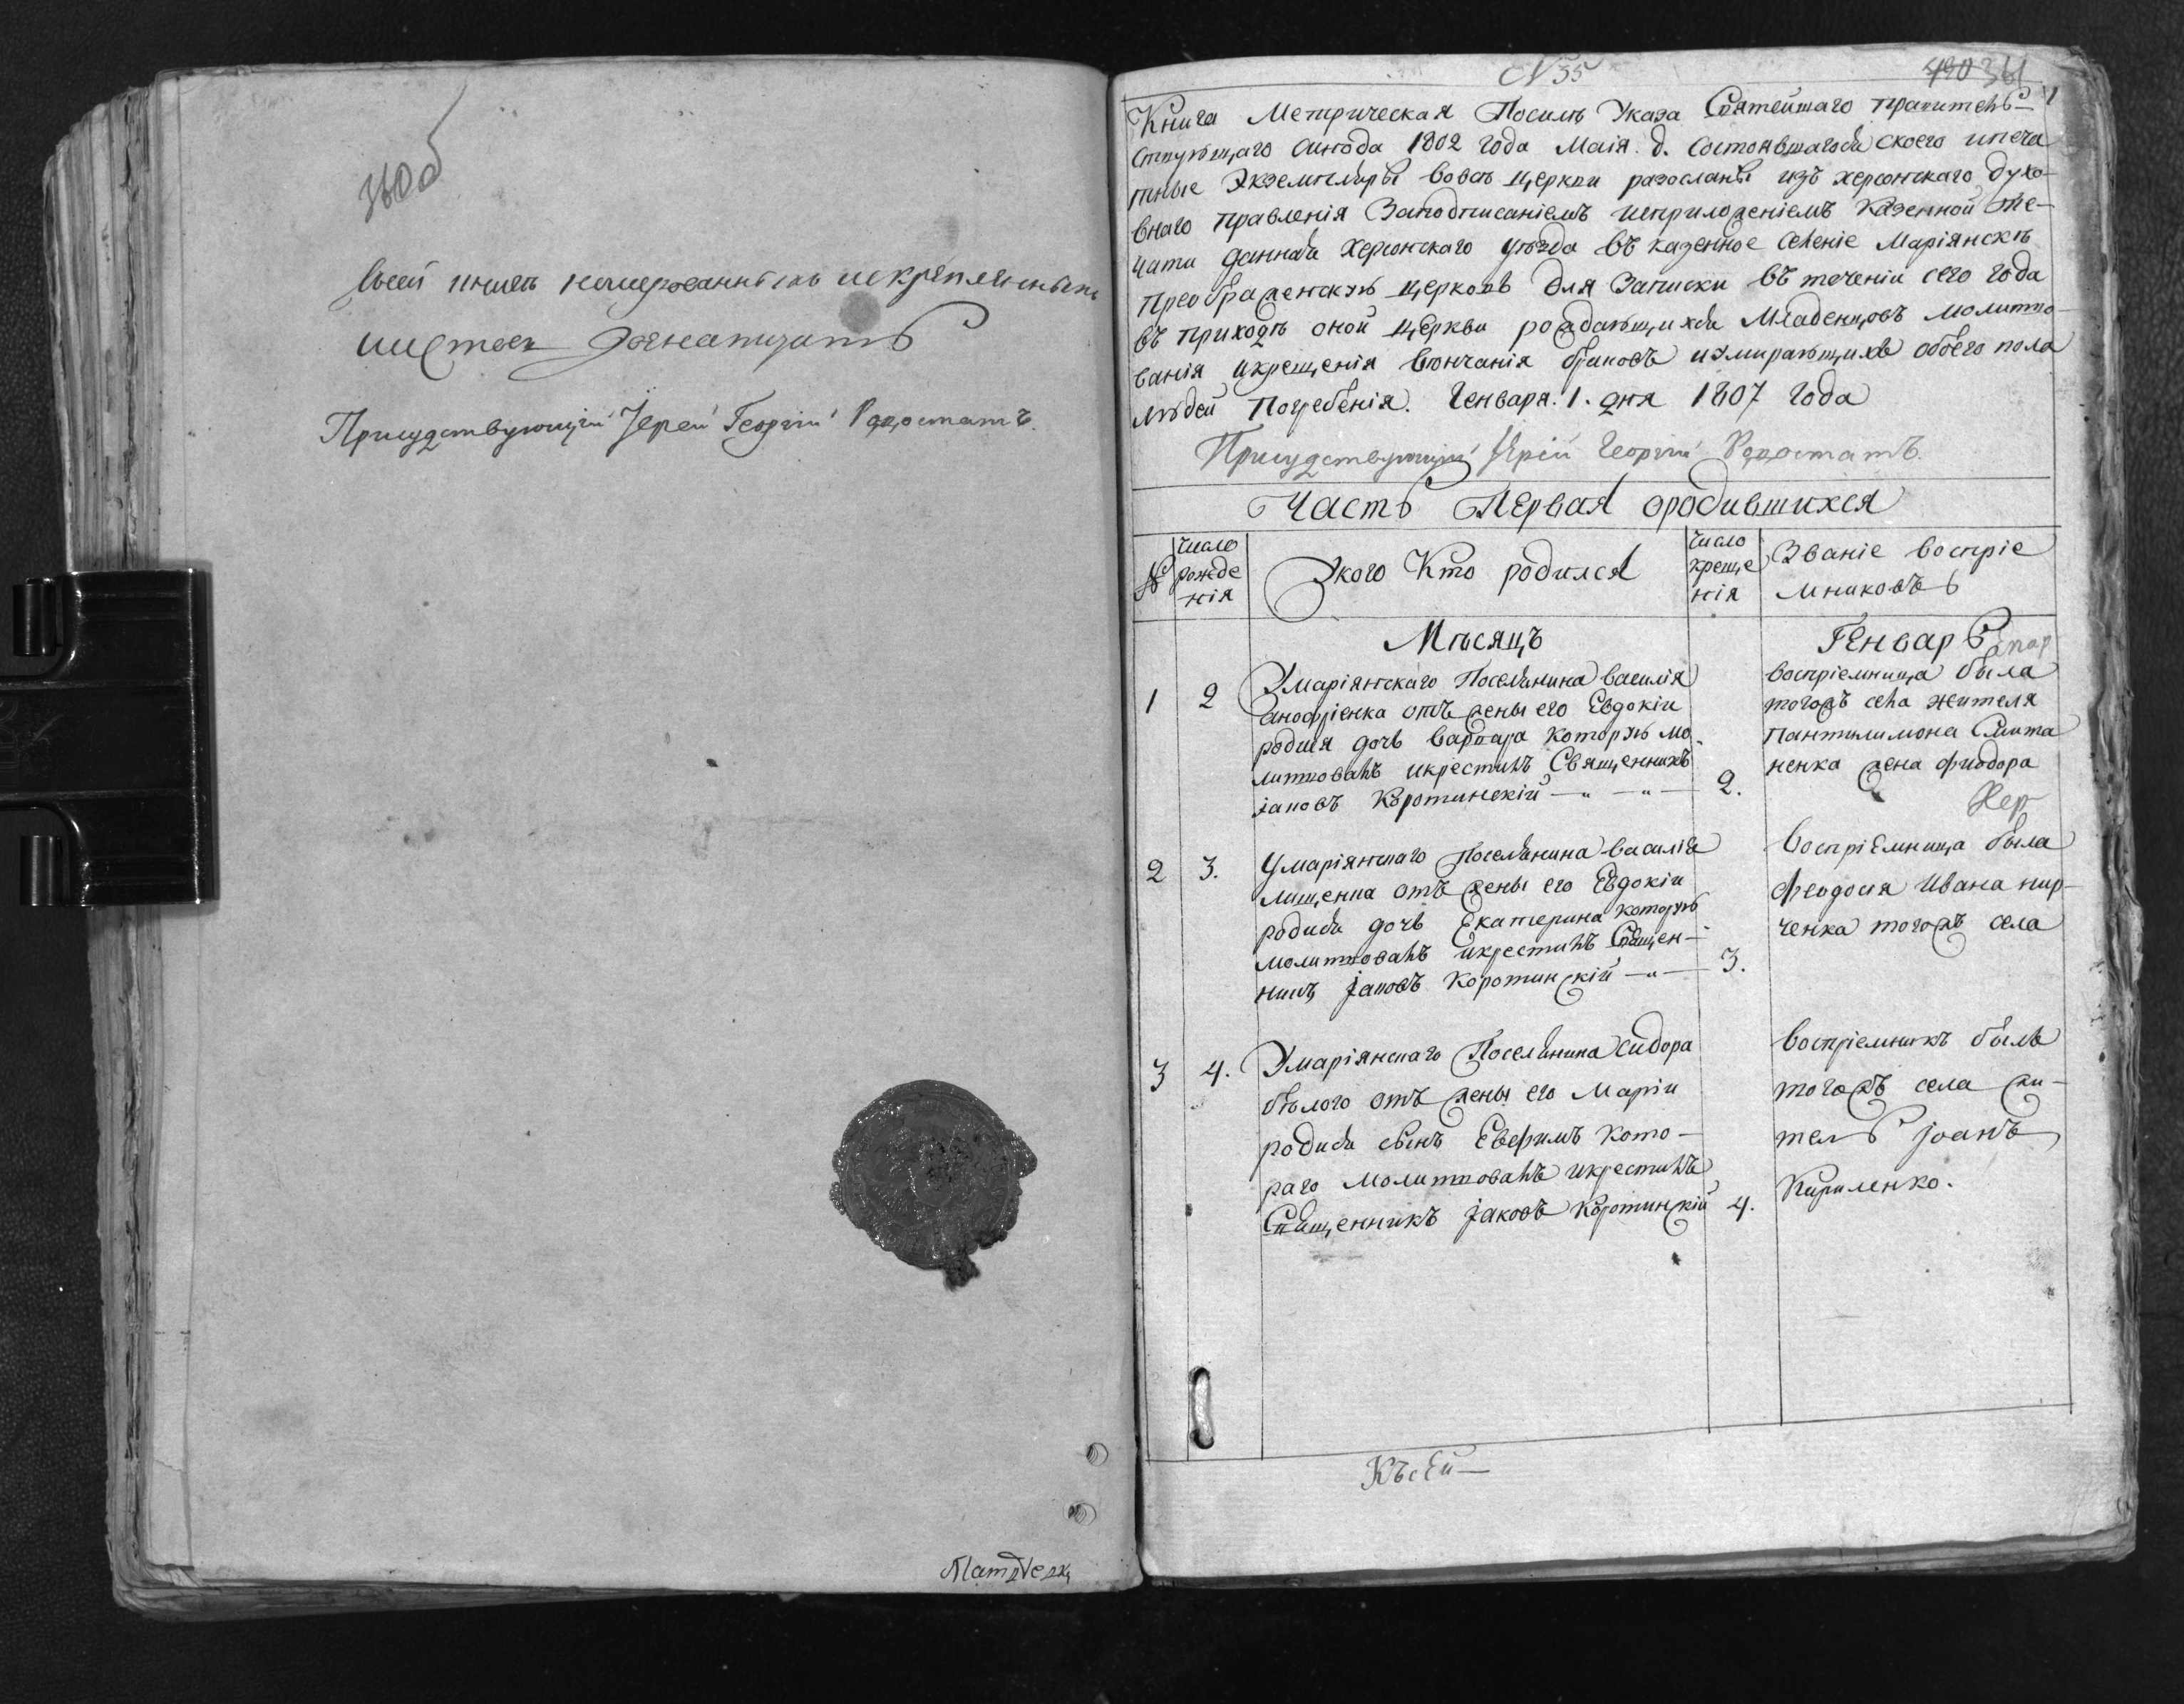 360об
Всей книгѣ номерованныхъ искрѣпленныхъ
листовъ двенатцать
Присудствующій Іерей Георгій
N 35
490 361
1
Книга Метрическая Посилѣ Указа Святейшаго правитель-
ствующаго синода 1802 года Маія. д. состоявшагося скоего ипеча
тные Экземпляры вовсѣ церкви разосланы изъ херсонскаго духо-
внаго правленія Заподписаніемъ иприложеніемъ казенной пе-
чати данная херсонскаго уѣзда въ казенное селеніе Маріянскѣ
преображенскую церковь для Записки въ теченіи сего года
въ приходѣ оной церкви рождающихся Младенцовъ молитво-
ванія икрещенія вѣнчанія браковъ иумирающихъ обоего пола
людей Погребенія. Генваря. 1. дня 1807 года
Присудствующій Іерей Георгій
Часть Первая ородившихся
№
число
рожде
нія
Укого Кто родился
число
креще
нія
Званіе воспріе
мниковъ
Мѣсяцъ
Генварь
1 2
Умаріянскаго Поселянина василія
анофріенка отъ жены его Евдокіи
родися дочь варвара которую мо-
литвовалъ икрестилъ Священникъ
іаковъ Коротинскій — " — " —
2.
воспріемница была
тогожъ села жителя
пантилимона
ненка жена фиодора
Хер
2 3.
Умаріянскаго Поселянина василія
лищенка отъ жены его Евдокіи
родися дочь Екатерина которую
молитвовалъ икрестилъ Священ-
никъ іаковъ Коротинскій — " —
3.
воспріемница была
феодосія Ивана кир-
ченка тогожъ села
3 4.
Умаріянскаго Поселянина сидора
бѣлого отъ жены его Маріи
родися сынъ Евфимъ кото-
раго молитвовалъ икрестилъ
Священникъ іаковъ Коротинскій
4.
воспріемникъ былъ
тогожъ села жи-
тель іоанъ
Кириленко.
Късей —